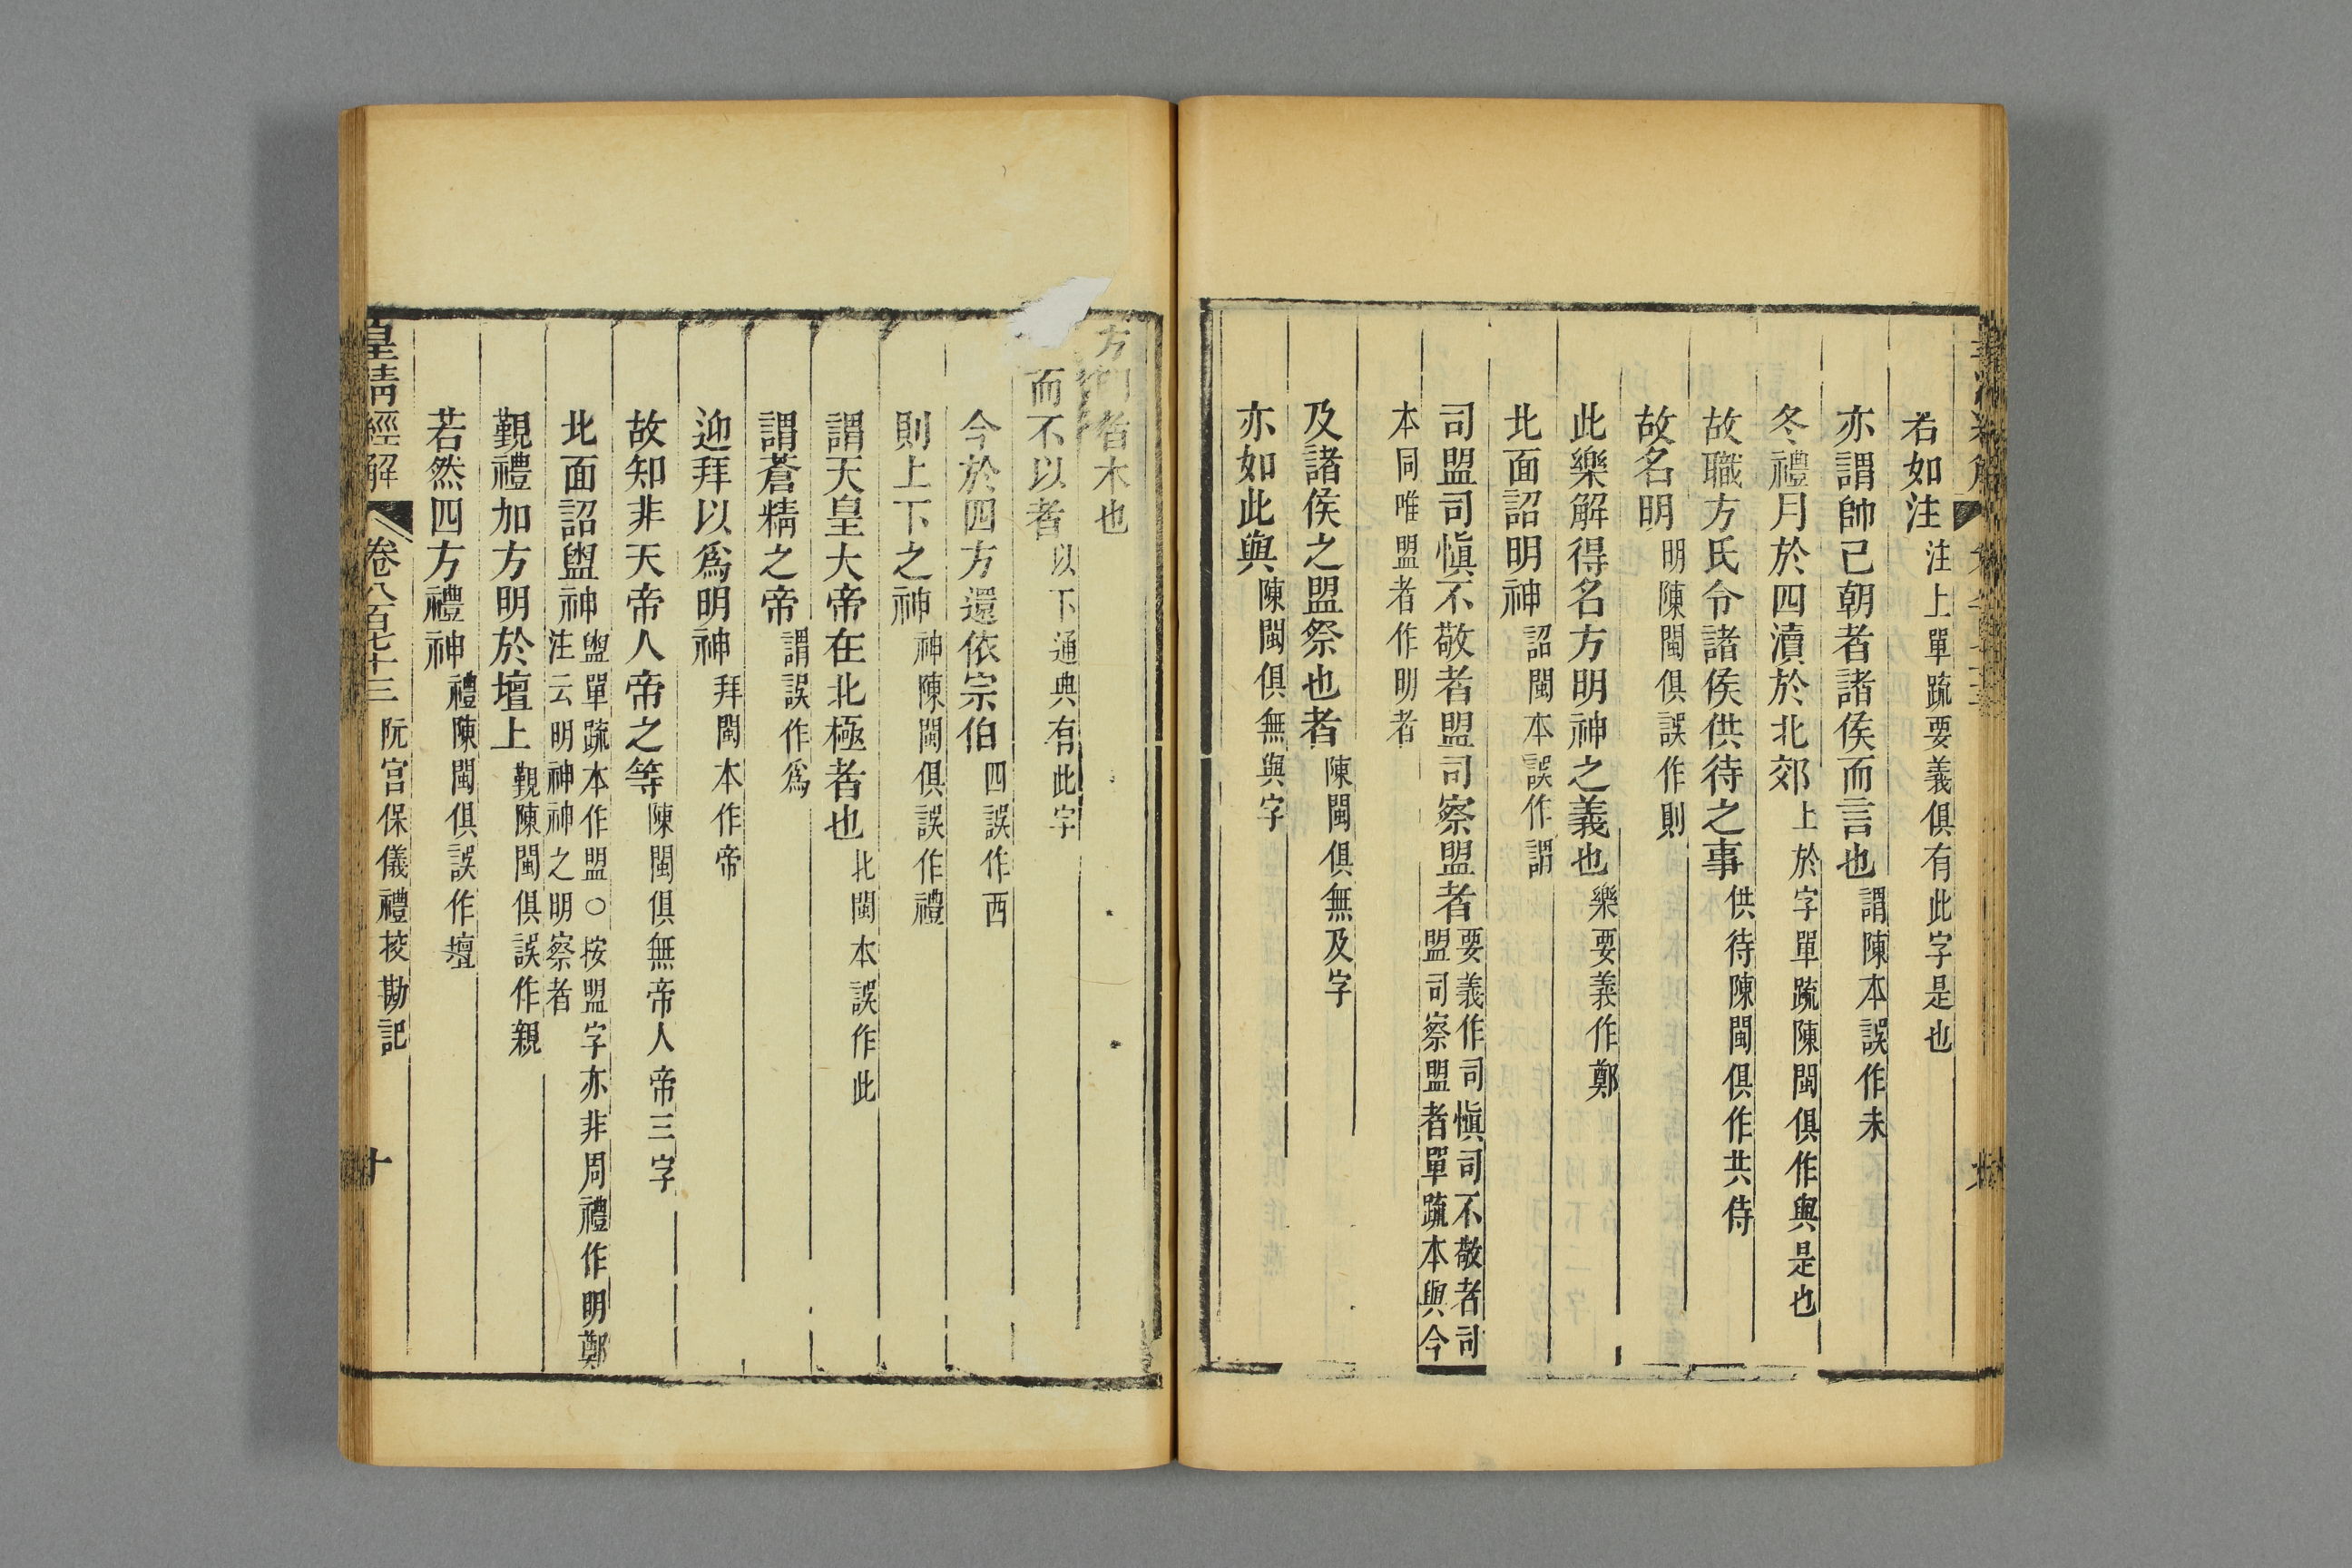 若如注注上單疏要義俱有此字是也
亦謂帥已朝者諸侯而言也謂陳本誤作未
冬禮月於四瀆於北郊上於字單疏陳閩俱作與是也
故職方氏令諸侯供待之事供待陳閩俱作共侍
故名明明陳閩俱誤作則
此樂解得名方明神之義也樂要義作鄭
北面詔明神詔閩本誤作謂
司盟司愼不敬者盟司察盟者要義作司愼司不敬者司
盟司察盟者單疏本與今
本同唯盟者作明者
及諸侯之盟祭也者陳閩俱無及字
亦如此與陳閩俱無與字
方明者木也
而不以者以下通典有此字
今於四方還依宗伯四誤作西
則上下之神神陳閩俱誤作禮
謂天皇大帝在北極者也北閩本誤作此
謂蒼精之帝謂誤作爲
迎拜以爲明神拜閩本作帝
故知非天帝人帝之等陳閩俱無帝人帝三字
北面詔盥神盥單疏本作盟○按盟字亦非周禮作明鄭
注云明神神之明察者
覲禮加方明於壇上覲陳閩俱誤作親
若然四方禮神禮陳閩俱誤作壇
皇清經解 卷八百七十三 阮宮保儀禮挍勘記 十